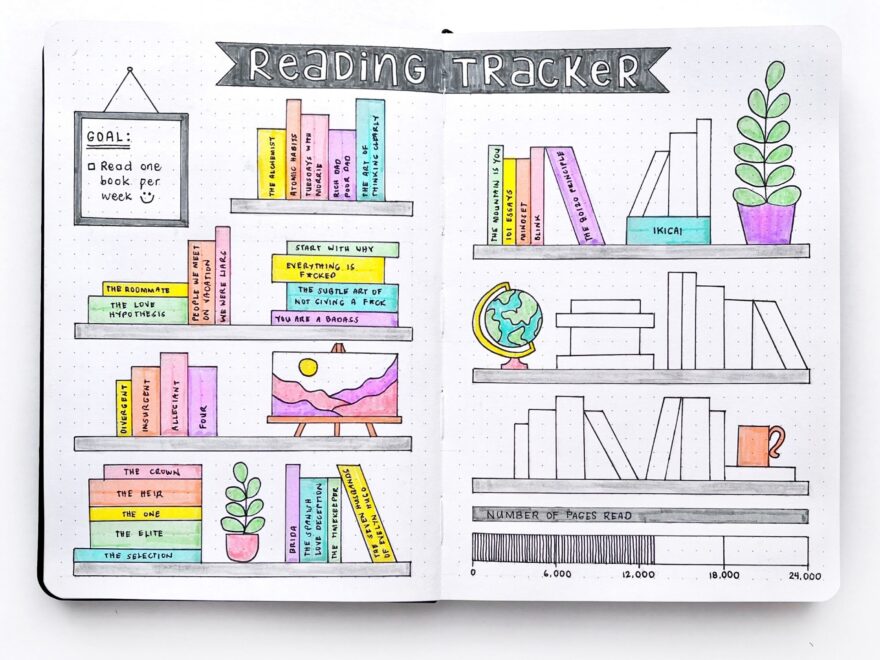 READING TRACKER
GOAL:
Read one
book per
week
THE ALCHEMIST
ATOMIC HABITS
TUESDAYS WITH
MORRIE
RICH DAD
POOR DAD
THE ART OF
THINKING CLEARLY
THE ROOMMATE
THE LOVE
HYPOTHESIS
PEOPLE WE MEET
ON VACATION
WE WERE LIARS
START WITH WHY
EVERYTHING IS
F*CKED
THE SUBTLE ART OF
NOT GIVING A F*CK
YOU ARE A BADASS
DIVERGENT
INSURGENT
ALLEGIANT
FOUR
THE CROWN
THE HEIR
THE ONE
THE ELITE
THE SELECTION
BRIDA
THE SPANISH
LOVE DECEPTION
THE TIMEKEEPER
THE SEVEN HUSBANDS
OF EVELYN HUGO
THE MOUNTAIN IS YOU
101 ESSAYS
MINDSET
BLINK
THE 80/20 PRINCIPLE
IKIGAI
NUMBER OF PAGES READ
0 6,000 12,000 18,000 24,000